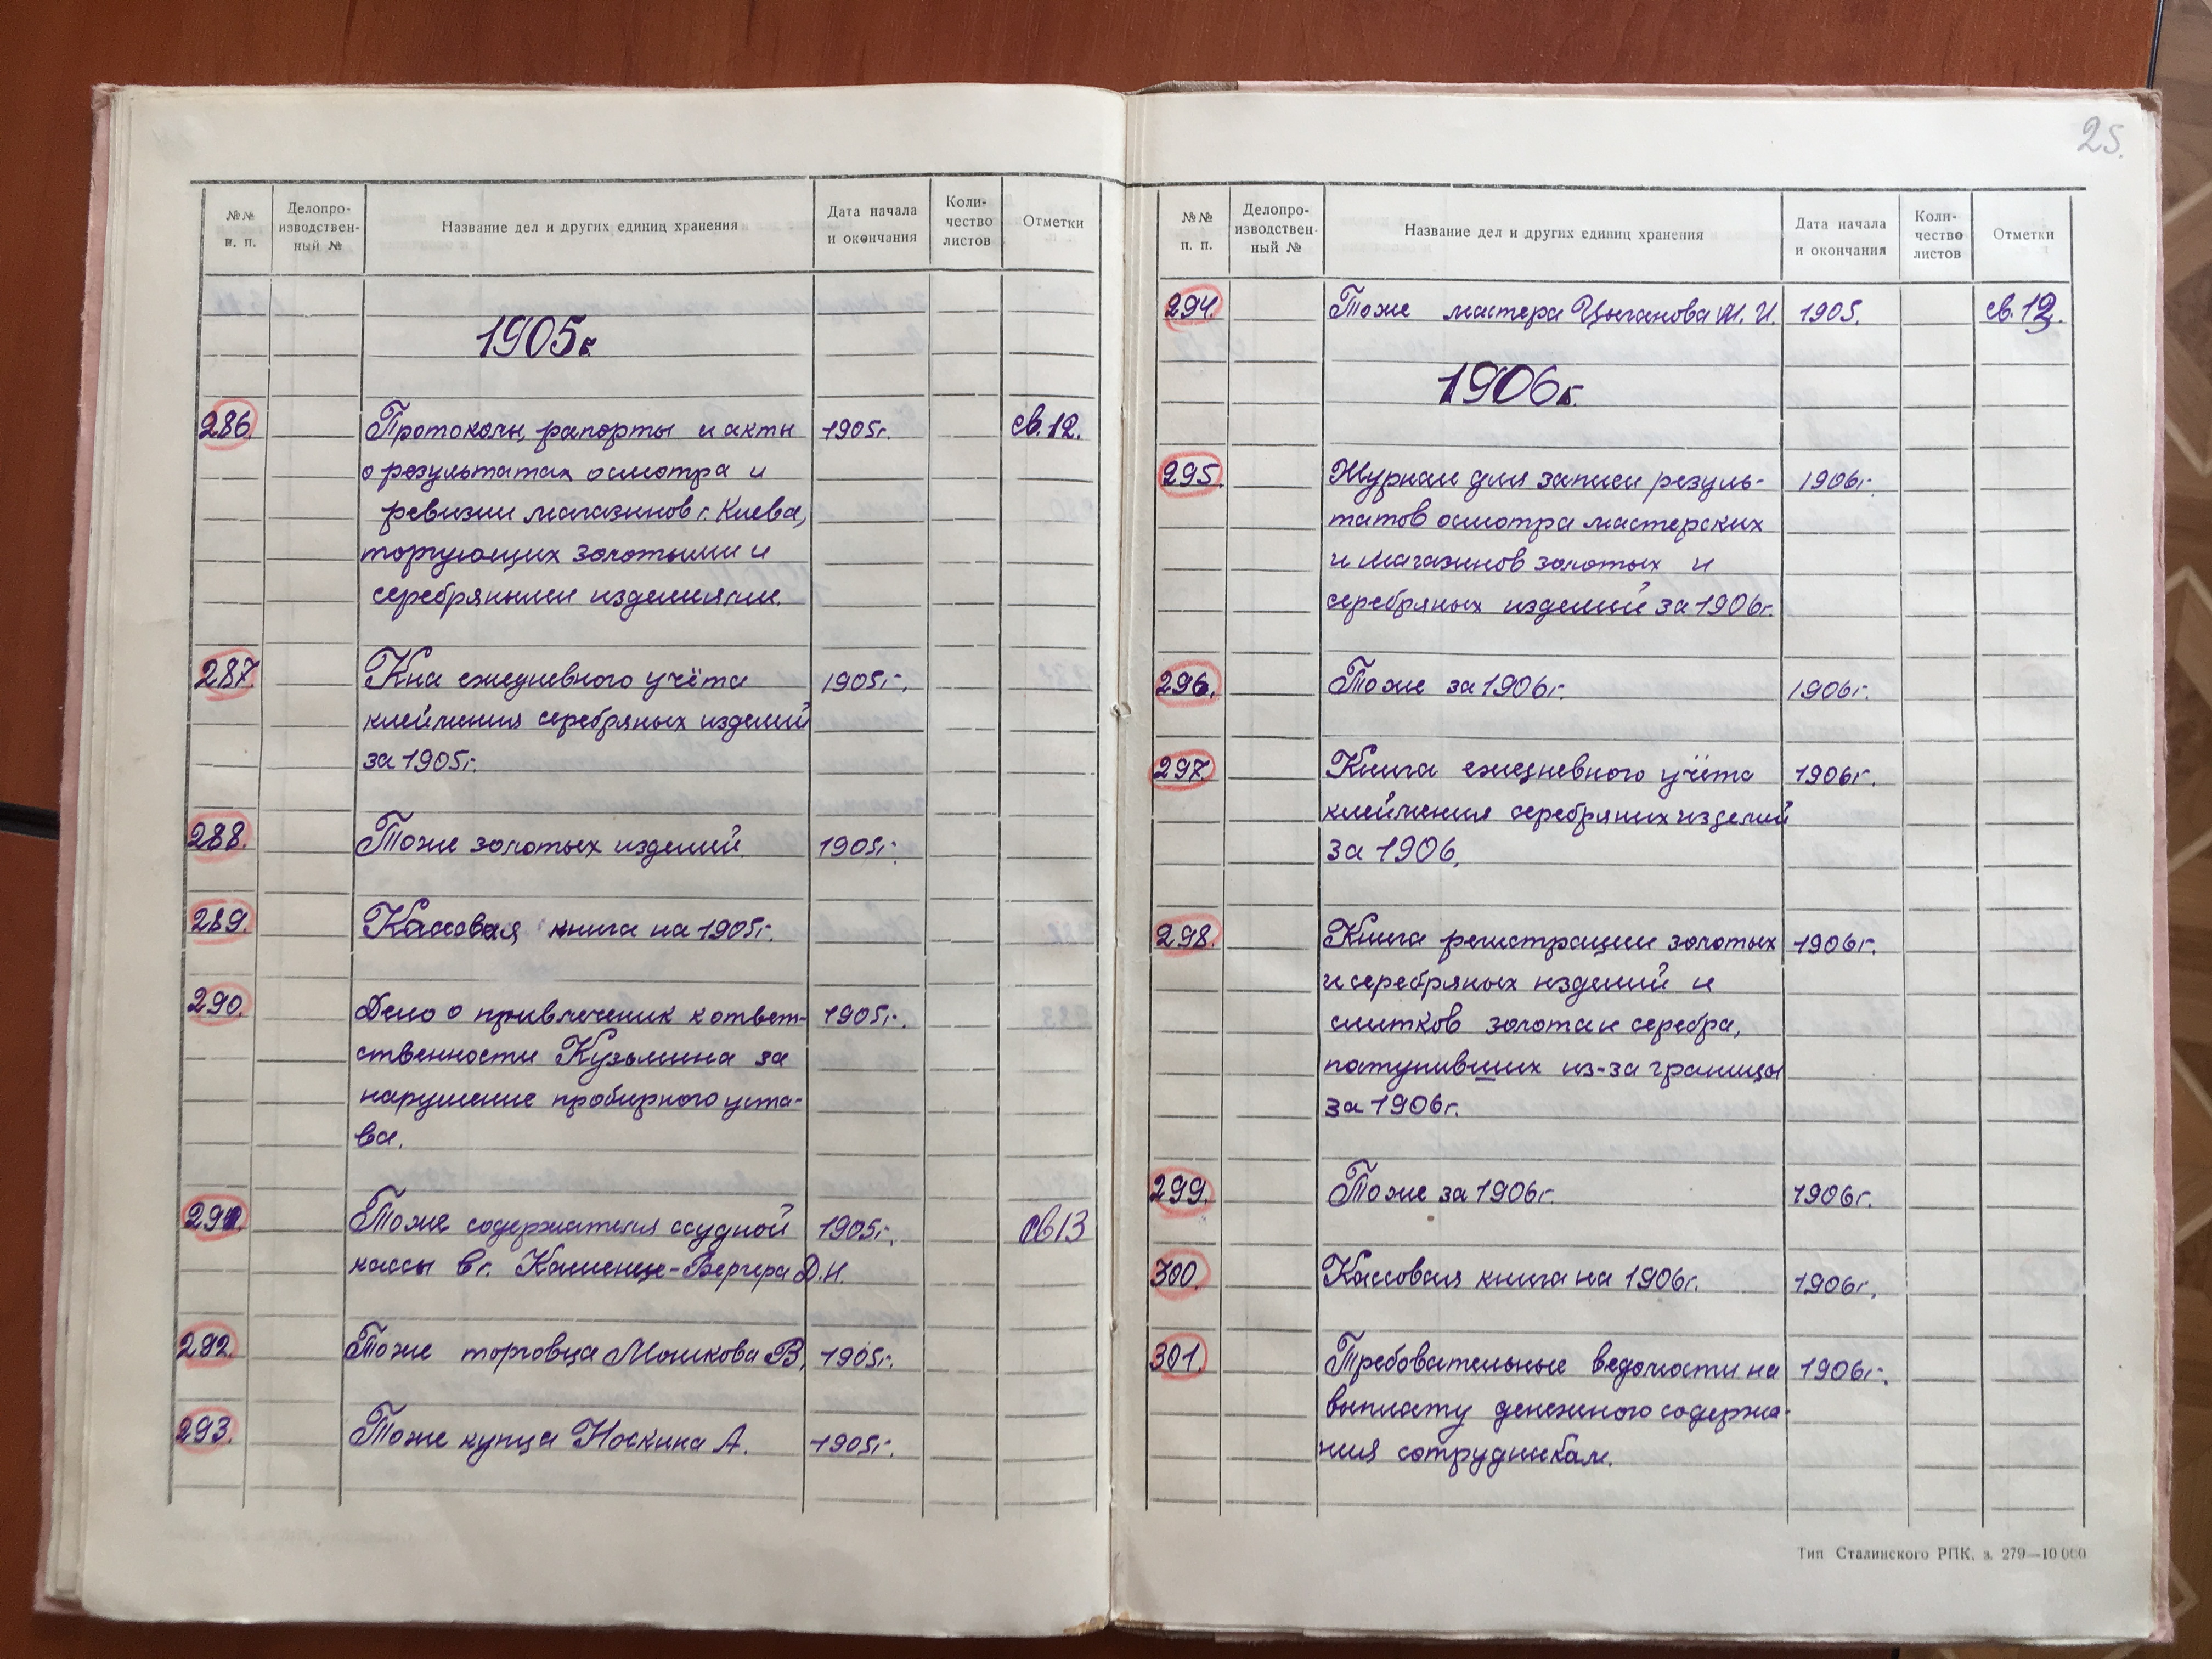 25.
№№ п. п.
Делопро-
изводствен-
ный №
Название дел и других единиц хранения
Дата начала
и окончания
Коли-
чество
листов
Отметки
1905г
286. Протоколы, рапорты и акты 1905г. св.12.
о результатах осмотра и
ревизии магазинов г. Киева,
торгующих золотыми и
серебряными изделиями.
287. Кна ежедневного учёта 1905г.
клеймения серебряных изделий
за 1905г.
288. Тоже золотых изделий 1905г.
289. Кассовая книга на 1905г.
290. Дело о привлечении к ответ- 1905г.
ственности Кузьмина за
нарушение пробирного уста-
ва.
291. Тоже содержателя ссудной 1905г. св13
кассы в г. Каменце-Вергера Д.Н.
292. Тоже торговца Мошкова В. 1905г.
293. Тоже купца Носкина А. 1905г.
№№ п. п.
Делопро-
изводствен-
ный №
Название дел и других единиц хранения
Дата начала
и окончания
Коли-
чество
листов
Отметки
294. Тоже мастера Цыганова М. И. 1905. св.
1906г.
295. Журнал для записи резуль- 1906г.
татов осмотра мастерских
и магазинов золотых и
серебряных изделий за 1906г.
296. Тоже за 1906г. 1906г.
297. Книга ежедневного учёта 1906г.
клеймения серебряных изделий
за 1906.
298. Книга регистрации золотых 1906г.
и серебряных изделий и
слитков золота и серебра,
поступивших из-за границы
за 1906г.
299. Тоже за 1906г. 1906г.
300. Кассовая книга на 1906г. 1906г.
301. Требовательные ведомости на 1906г.
выплату денежного содержа-
ния сотрудникам.
Тип Сталинского РПК. з. 279—10 000